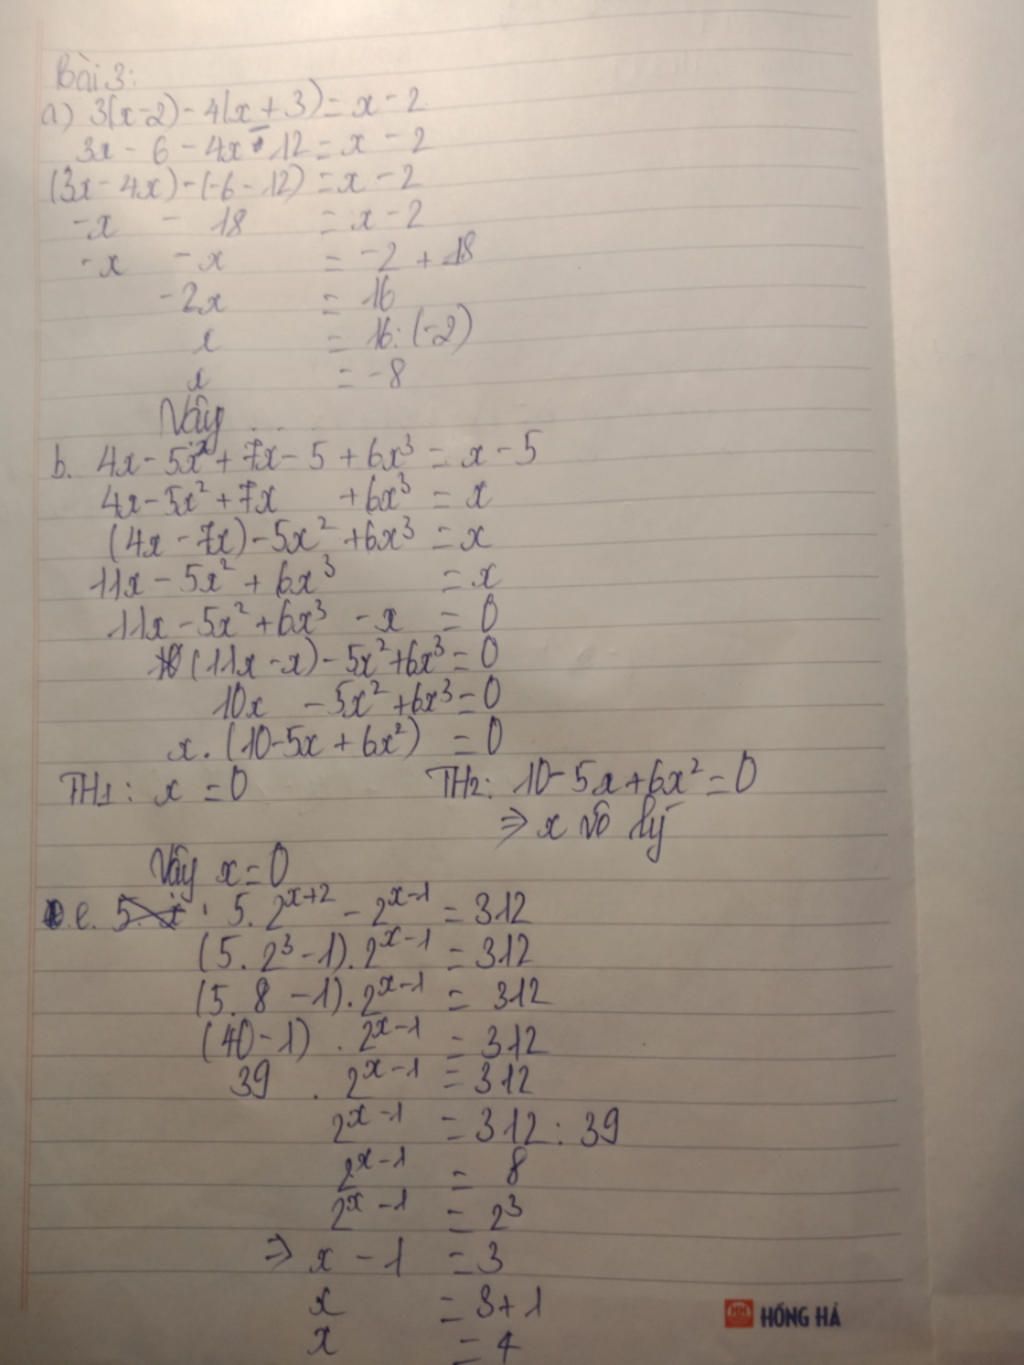 Bài 3:
a) 3(x-2) - 4(x+3) = x - 2
3x - 6 - 4x - 12 = x - 2
(3x - 4x) - (-6 - 12) = x - 2
-x - 18 = x - 2
-x -x = -2 + 18
-2x = 16
x = 16: (-2)
x = -8
Vậy ...
b. 4x - 5x² + 7x - 5 + 6x³ = x - 5
4x - 5x² + 7x + 6x³ = x
(4x - 7x) - 5x² + 6x³ = x
11x - 5x² + 6x³ = x
11x - 5x² + 6x³ - x = 0
(11x - x) - 5x² + 6x³ = 0
10x - 5x² + 6x³ = 0
x. (10 - 5x + 6x²) = 0
TH1: x = 0 TH2: 10 - 5x + 6x² = 0
⇒ x vô lý
Vậy x = 0
e. 5. 2^{x+2} - 2^{x-1} = 312
(5. 2³ - 1). 2^{x-1} = 312
(5. 8 - 1). 2^{x-1} = 312
(40 - 1) . 2^{x-1} = 312
39 . 2^{x-1} = 312
2^{x-1} = 312 : 39
2^{x-1} = 8
2^{x-1} = 2³
⇒ x - 1 = 3
x = 3 + 1
x = 4
HỒNG HÀ